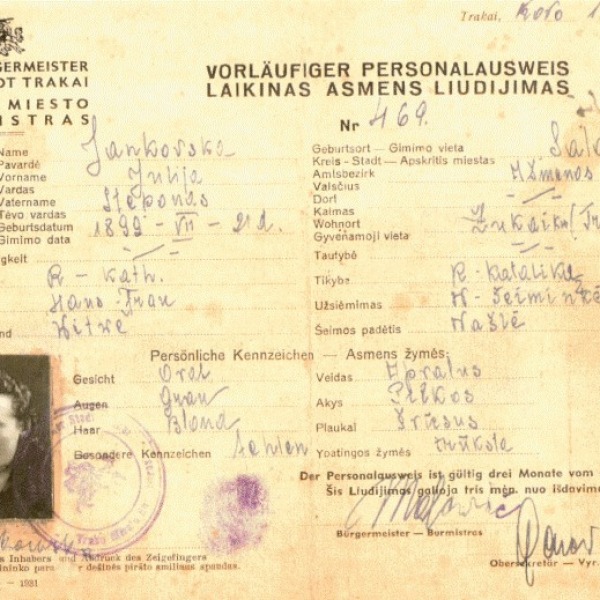 Trakai,
GERMEISTER
VORLÄUFIGER PERSONALAUSWEIS
DT TRAKAI
LAIKINAS ASMENS LIUDIJIMAS
MIESTO
ISTRAS
Nr 469.
Name Jankovska
Pavardė
Vorname Julija
Vardas
Vatername Steponas
Tėvo vardas
Geburtsdatum 1899 - VII - 21 d.
Gimimo data
igkeit
R - kath.
Haus-Frau
nd Witwe
Geburtsort - Gimimo vieta
Kreis - Stadt — Apskritis miestas
Amtsbezirk
Valsčius
Dorf
Kaimas
Wohnort
Gyvenamoji vieta
Tautybė
Tikyba R-Katalikė
Užsiėmimas N-Šeimininkė
Šeimos padėtis Našlė
Persönliche Kennzeichen — Asmens žymės:
Gesicht Oval
Augen Grau
Haar Blond
Besondere Kennzeichen
Veidas Apvalus
Akys Pilkos
Plaukai
Ypatingos žymės
Der Personalausweis ist gültig drei Monate vom
Šis Liudijimas galioja tris mėn. nuo išdavimo
Bürgermeister — Burmistras
Obersekretär — Vyr.
s Inhabers und Abdruck des Zeigefingers
ininko parašas dešinės piršto smiliaus spaudas.
— 1931